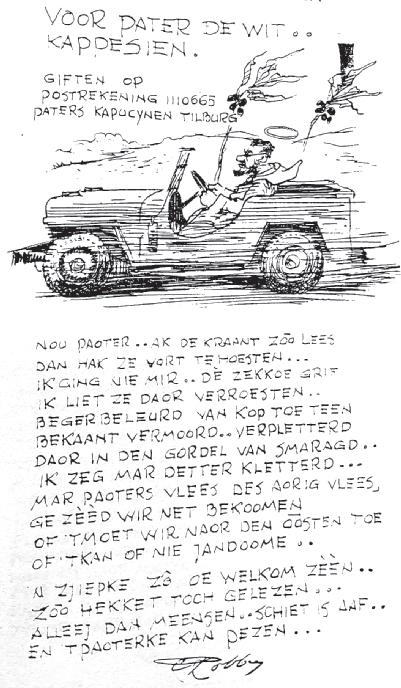 VOOR PATER DE WIT..
KAPPESIEN.
GIFTEN OP
POSTREKENING 1110665
PATERS KAPUCYNEN TILBURG
NOU PAOTER..AK DE KRAANT ZÔO LEES
DAN HAK ZE VORT TE HOESTEN...
IK GING NIE MIR.. DÈ ZEKKOE GRIF
IK LIET ZE DAOR VERROESTEN..
BEGERBELEURD VAN KOP TOE TEEN
BEKAANT VERMOORD.. VERPLETTERD
DAOR IN DEN GORDEL VAN SMARAGD..
IK ZEG MAR DETTER KLETTERD...
MAR PAOTERS VLEES DES AORIG VLEES,
GE ZÈÈD WIR NET BEKOOMEN
OF 'TMOET WIR NAOR DEN OOSTEN TOE
OF 'TKAN OF NIE JANDOOME..
'N ZJIEPKE ZÔ OE WELKOM ZÈÈN..
ZÔO HEKKET TOCH GELEZEN...
ALLEEJ DAN MEENSEN..SCHIET IS AAF..
EN TPAOTERKE KAN PEZEN...
Robben